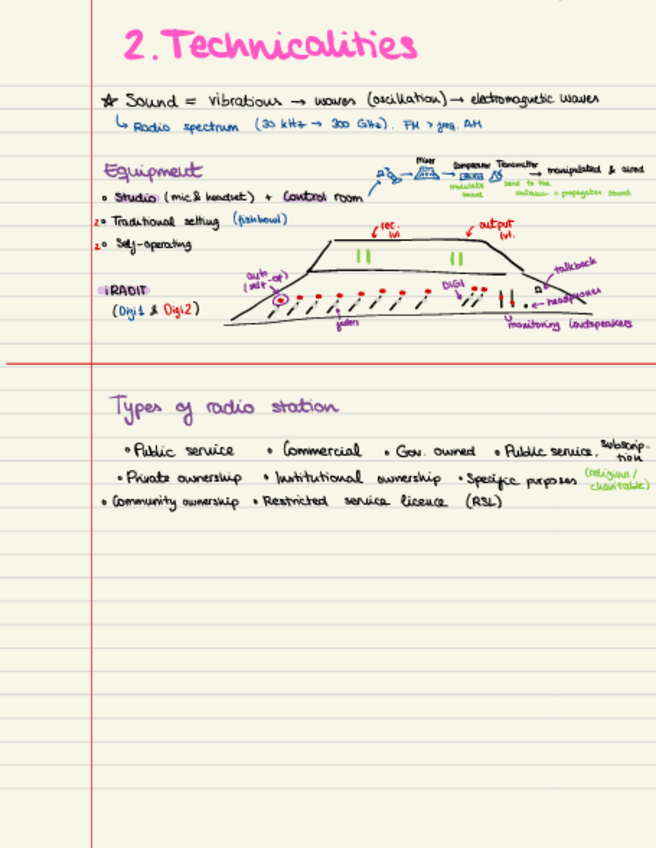 2. Technicalities
☆ Sound = vibrations → waves (oscillation) → electromagnetic waves
↳ Radio spectrum (30 kHz → 300 GHz). FM > freq. AM
Equipment
Mixer Compressor Transmitter → manipulated & aired
modulate sound
send to the antenna = propagates sound
• Studio (mic & headset) + Control room
2• Traditional setting (fishbowl)
2• Self-operating
rec. lvl
output lvl.
auto (self-op)
iRADIT
(Digi1 & Digi2)
DIGI
talkback
headphones
monitoring loudspeakers
Types of radio station
• Public service • Commercial • Gov. owned • Public service, subscription
• Private ownership • Institutional ownership • Specific purposes (religious/charitable)
• Community ownership • Restricted service licence (RSL)